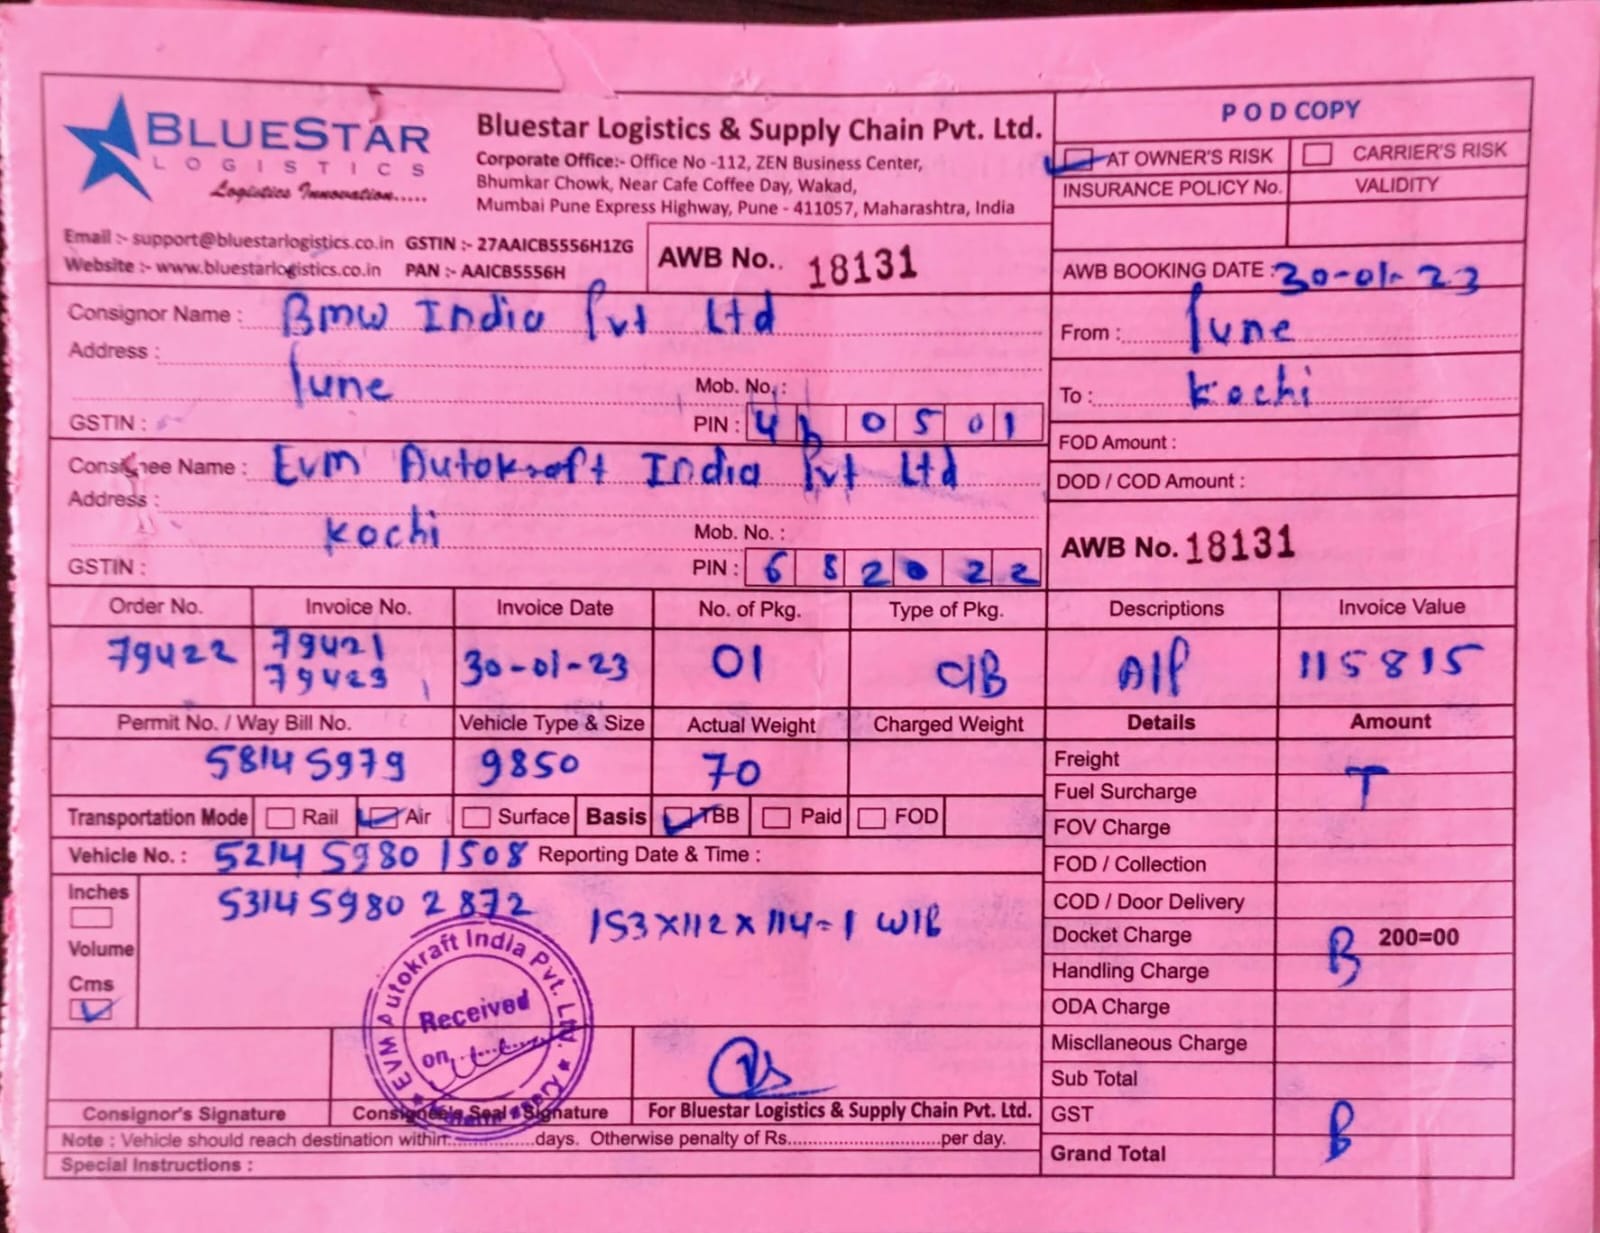 BLUESTAR
LOGISTICS
Logistics Innovation.....
Bluestar Logistics & Supply Chain Pvt. Ltd.
Corporate Office:- Office No -112, ZEN Business Center,
Bhumkar Chowk, Near Cafe Coffee Day, Wakad,
Mumbai Pune Express Highway, Pune - 411057, Maharashtra, India
Email :- support@bluestarlogistics.co.in GSTIN :- 27AAICB5556H1ZG
Website :- www.bluestarlogistics.co.in PAN :- AAICB5556H
AWB No.. 18131
POD COPY
AT OWNER'S RISK CARRIER'S RISK
INSURANCE POLICY No. VALIDITY
AWB BOOKING DATE : 30-01-23
From : Pune
To : Kochi
FOD Amount :
DOD / COD Amount :
AWB No. 18131
Consignor Name : Bmw India Pvt Ltd
Address :
Pune Mob. No. :
GSTIN : PIN : 4 0 5 0 1
Consignee Name : Evm Autokraft India Pvt Ltd
Address :
Kochi Mob. No. :
GSTIN : PIN : 6 8 2 0 2 2
Order No. Invoice No. Invoice Date No. of Pkg. Type of Pkg. Descriptions Invoice Value
79422 79421 30-01-23 01 C/B A/P 115815
79423
Permit No. / Way Bill No. Vehicle Type & Size Actual Weight Charged Weight
58145979 9850 70
Transportation Mode Rail Air Surface Basis TBB Paid FOD
Vehicle No. : 52145980 1508 Reporting Date & Time :
53145980 2872
153x112x114-1 W/B
Inches
Volume
Cms
Details Amount
Freight
T
Fuel Surcharge
FOV Charge
FOD / Collection
COD / Door Delivery
Docket Charge 200=00
B
Handling Charge
ODA Charge
Miscllaneous Charge
Sub Total
GST
B
Grand Total
EVM Autokraft India Pvt. Ltd.
Received
on
Consignor's Signature
Consignee's Seal & Signature
For Bluestar Logistics & Supply Chain Pvt. Ltd.
Note : Vehicle should reach destination within..............days. Otherwise penalty of Rs.........................per day.
Special Instructions :